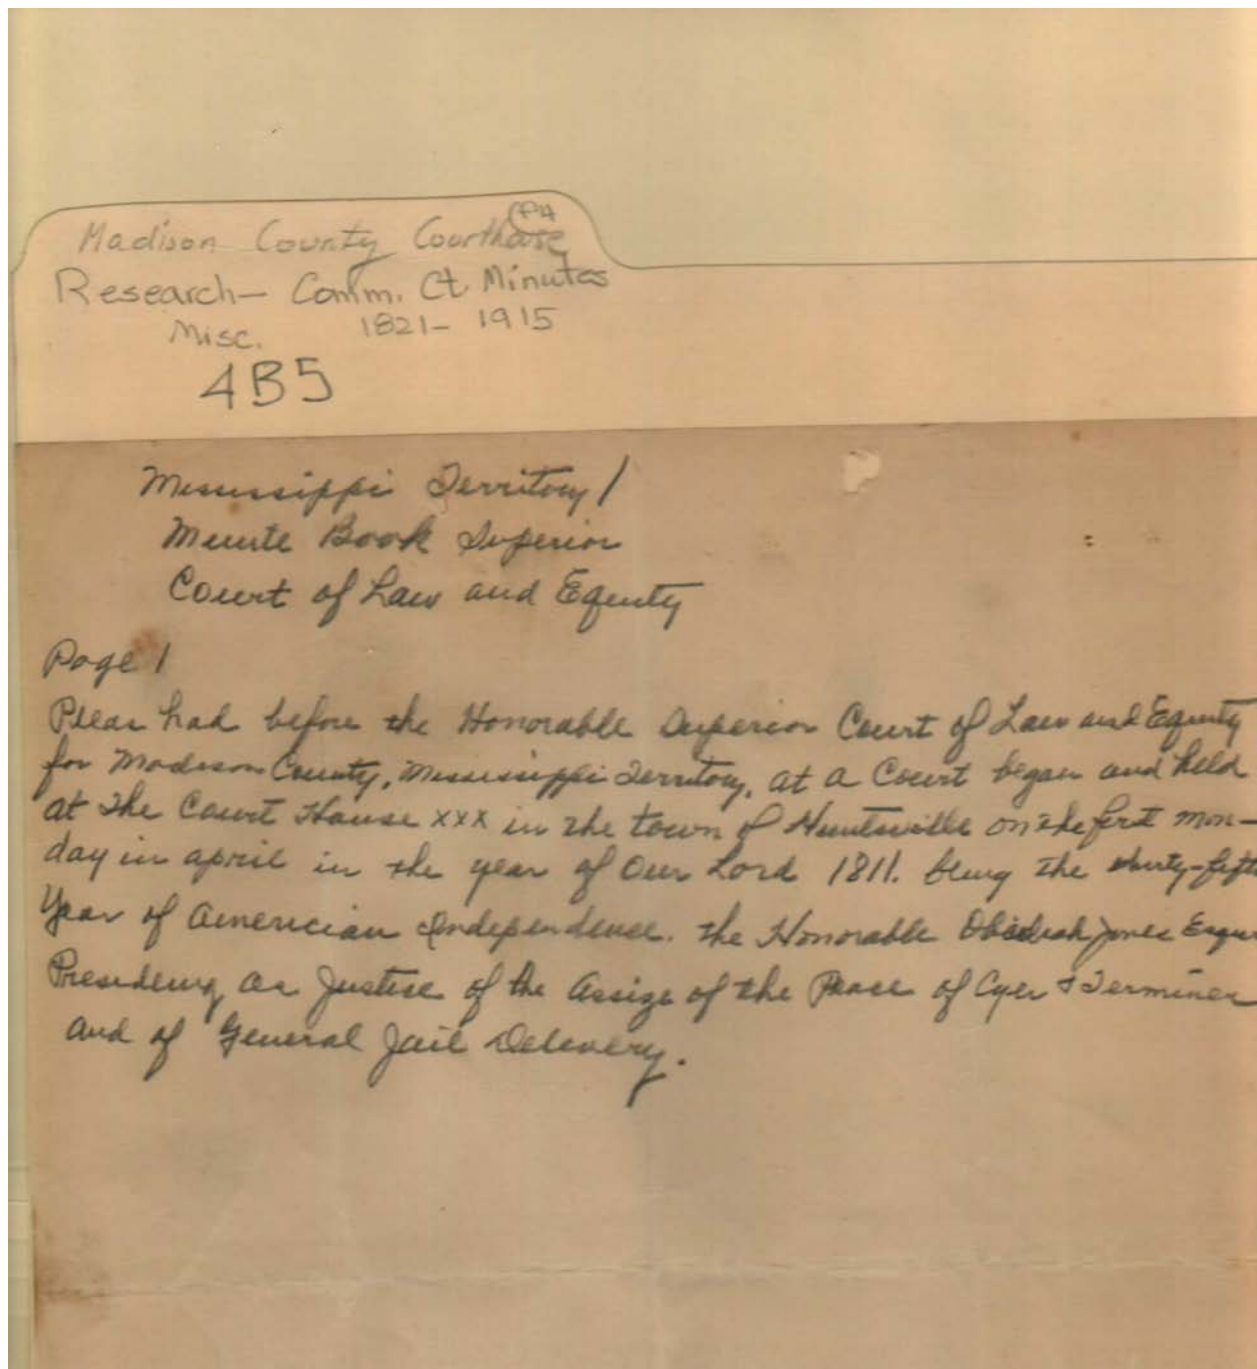 Madison County Courthouse
Research - Comm. Ct Minutes
Misc. 1821 - 1915
4B5
Mississippi Territory /
Minute Book Superior
Court of Law and Equity
Page 1
Pleas had before the Honorable Superior Court of Law and Equity
for Madison County, Mississippi Territory, at a Court began and held
at the Court House xxx in the town of Huntsville on the first mon-
day in april in the year of Our Lord 1811. being the thirty-fifth
Year of Americian Independence. the Honorable Obediah Jones
Presideing as Justise of the Assize of the Peace of Oyer & Terminer
and of General Jail Delevery.